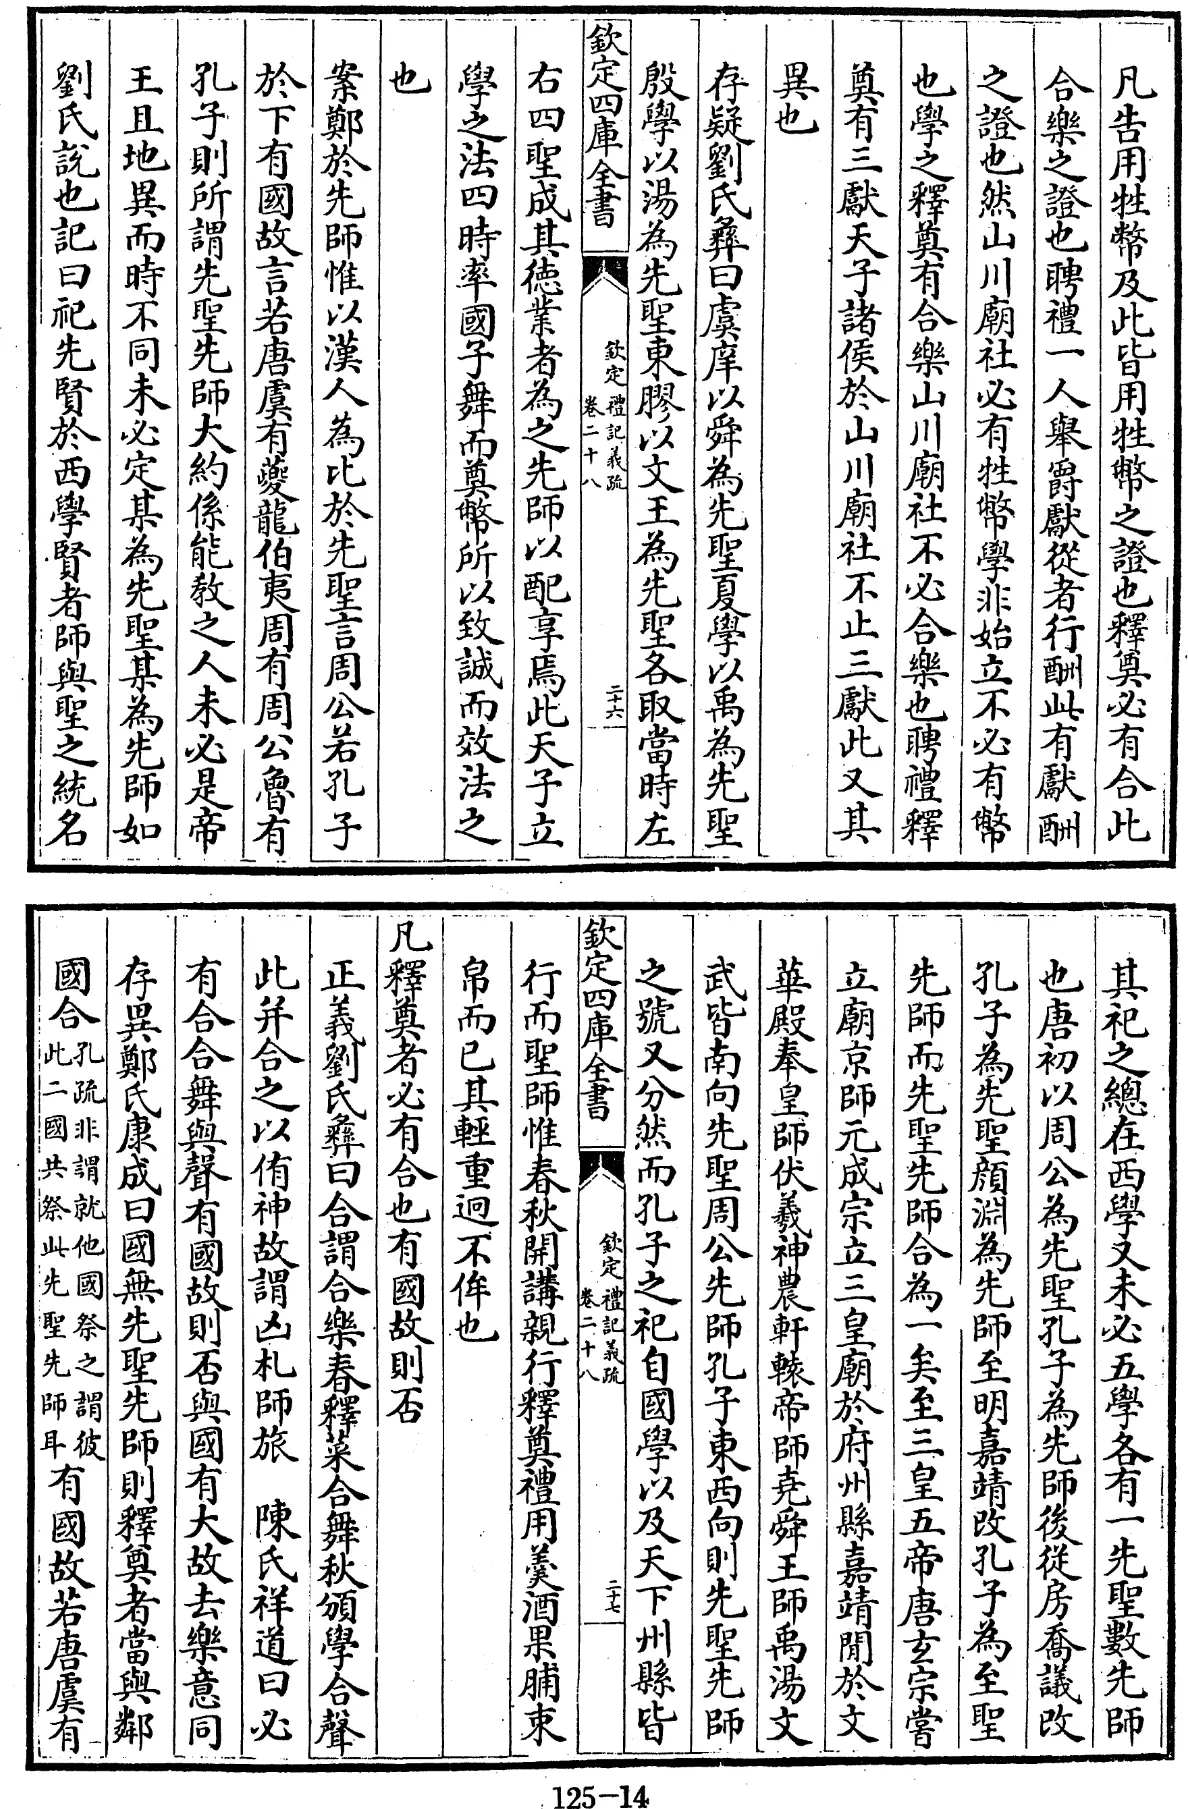 凡告用牲幣及此皆用牲幣之證也釋奠必有合此
合樂之證也聘禮一人舉爵獻從者行酬此有獻酬
之證也然山川廟社必有牲幣學非始立不必有幣
也學之釋奠有合樂山川廟社不必合樂也聘禮釋
奠有三獻天子諸侯於山川廟社不止三獻此又其
異也
存疑劉氏彝曰虞庠以舜為先聖夏學以禹為先聖
殷學以湯為先聖東膠以文王為先聖各取當時左
欽定四庫全書
欽定禮記義疏
卷二十八
二十六
右四聖成其徳業者為之先師以配享焉此天子立
學之法四時率國子舞而奠幣所以致誠而效法之
也
案鄭於先師惟以漢人為比於先聖言周公若孔子
於下有國故言若唐虞有夔龍伯夷周有周公魯有
孔子則所謂先聖先師大約係能教之人未必是帝
王且地異而時不同未必定某為先聖某為先師如
劉氏說也記曰祀先賢於西學賢者師與聖之統名
其祀之總在西學又未必五學各有一先聖數先師
也唐初以周公為先聖孔子為先師後從房喬議改
孔子為先聖顔淵為先師至明嘉靖改孔子為至聖
先師而先聖先師合為一矣至三皇五帝唐玄宗嘗
立廟京師元成宗立三皇廟於府州縣嘉靖閒於文
華殿奉皇師伏羲神農軒轅帝師堯舜王師禹湯文
武皆南向先聖周公先師孔子東西向則先聖先師
之號又分然而孔子之祀自國學以及天下州縣皆
欽定四庫全書
欽定禮記義疏
卷二十八
二十七
行而聖師惟春秋開講親行釋奠禮用羹酒果脯束
帛而已其輕重迥不侔也
凡釋奠者必有合也有國故則否
正義劉氏彝曰合謂合樂春釋菜合舞秋頒學合聲
此并合之以侑神故謂凶札師旅　陳氏祥道曰必
有合合舞與聲有國故則否與國有大故去樂意同
存異鄭氏康成曰國無先聖先師則釋奠者當與鄰
國合孔疏非謂就他國祭之謂彼此二國共祭此先聖先師耳有國故若唐虞有
125-14